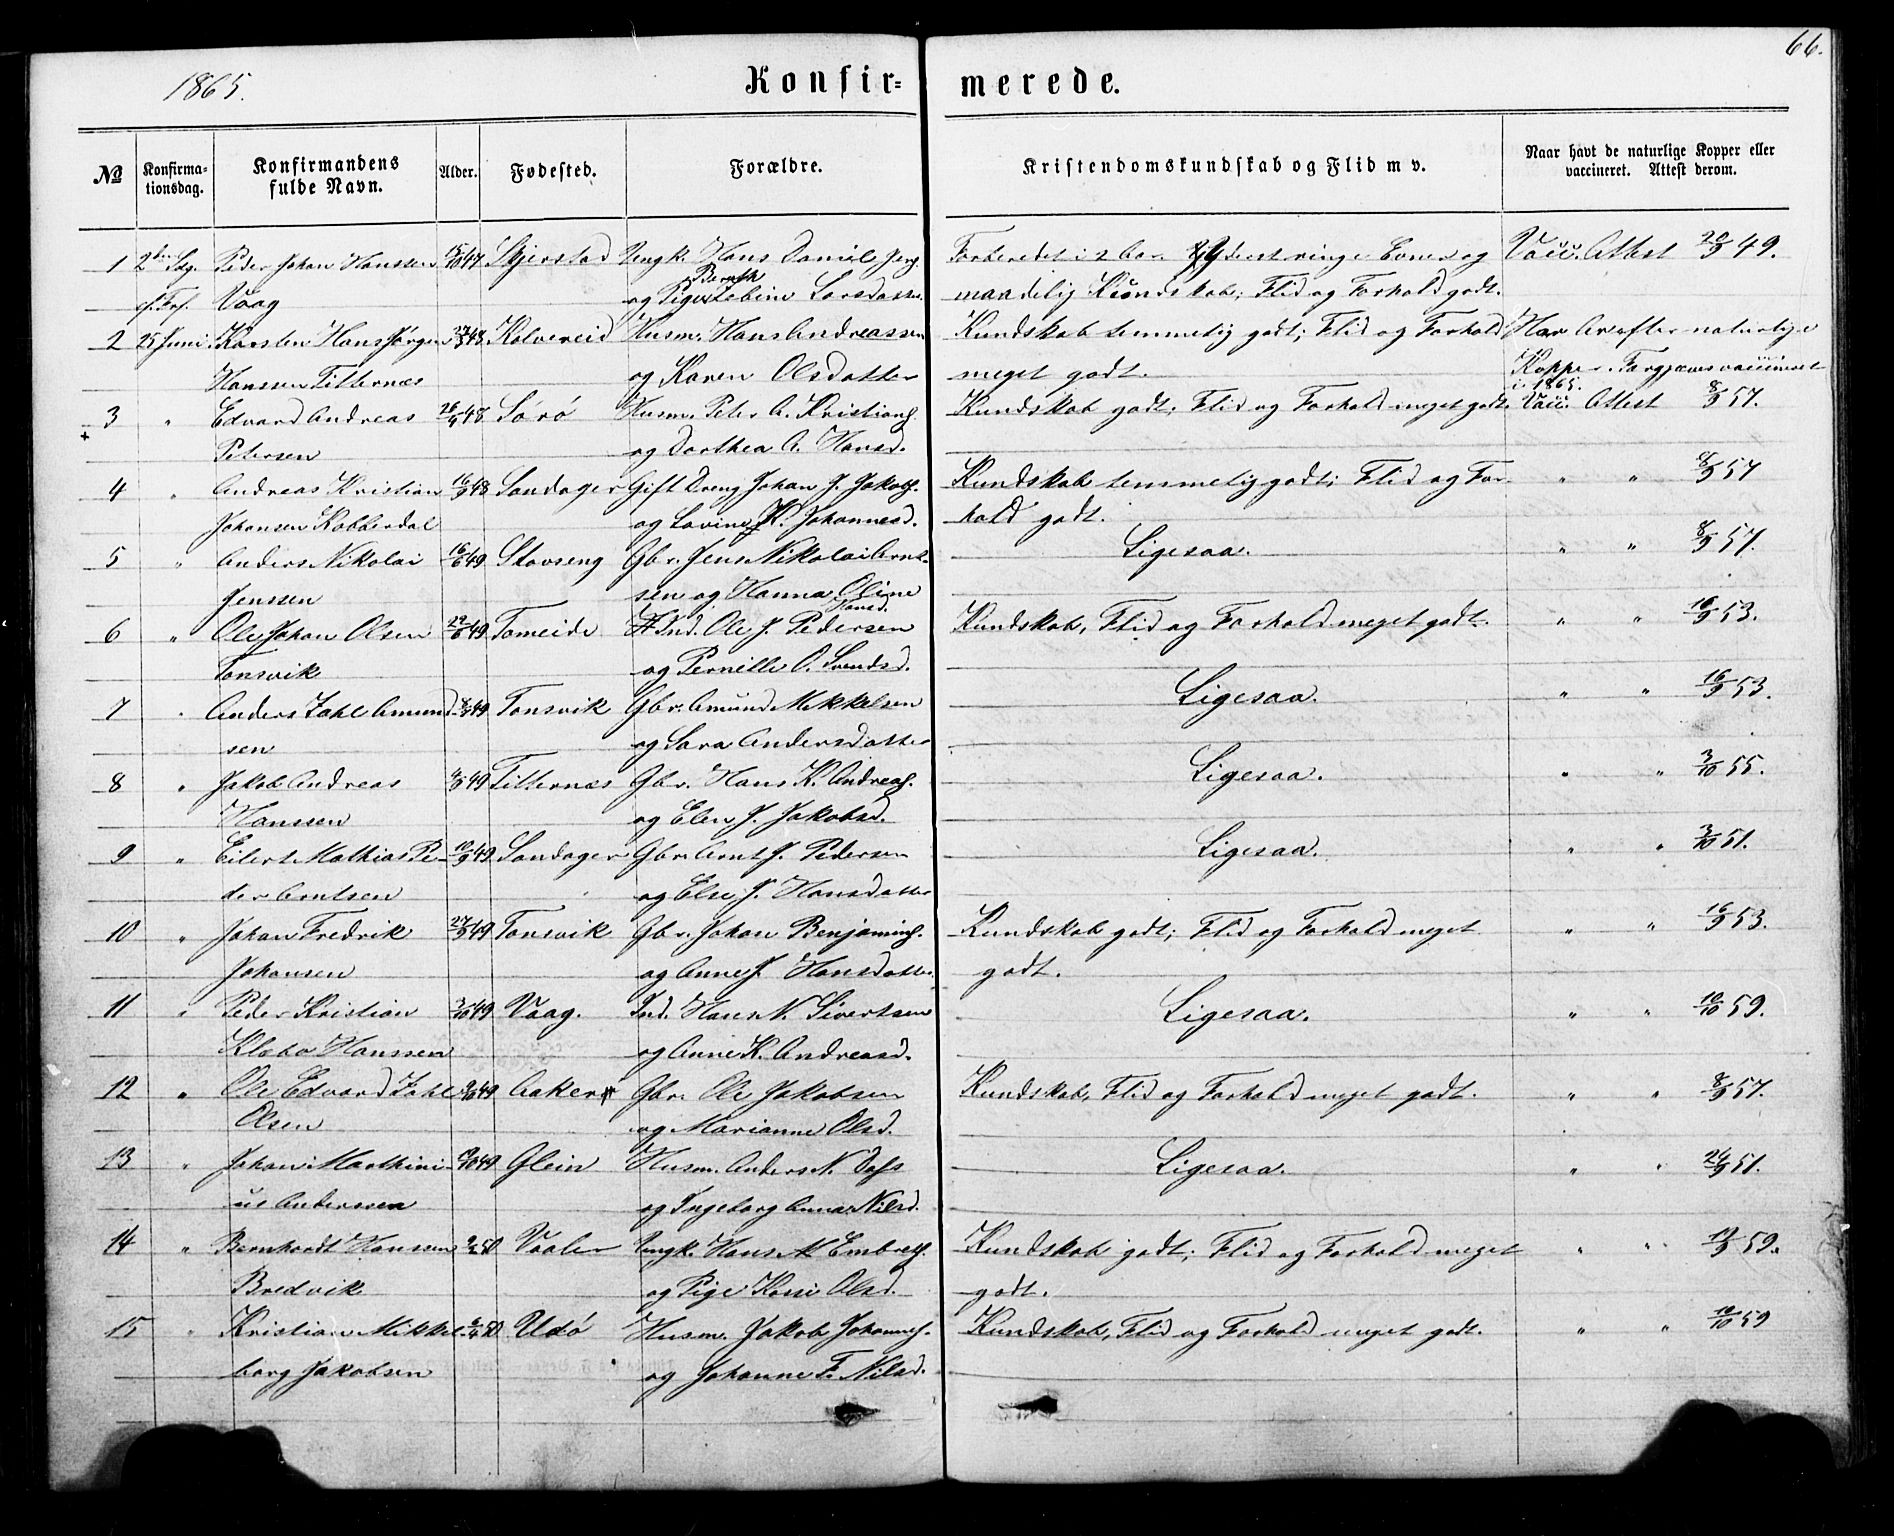 66.
1865.
Konfir= merede.
№ Konfirma-tionsdag. Konfirmandens fulde Navn. Alder. Fødested. Forældre. Kristendomskundskab og Flid m v. Naar havt de naturlige Kopper eller vaccineret. Attest derom.
1 2den Sdg. Peder Johan Hanssen 15/10 47 Skjerstad Ungk. Hans Daniel Forberedet i 2 Aar. dest ringe Evner og Vacc. Attest 20/9 49.
ef. Tref. Vaag og Pige Larsdatter maadelig Kundskab; Flid og Forhold godt.
2 25 Juni Karsten Hans Jørgen 48 Kolvereid Husm. Hans Andreassen Kundskab temmelig godt; Flid og Forhold Har Ar efter naturlige
Hanssen Titternæs og Karen Olsdatter meget godt. Kopper. Forgjæves vaccineret
i 1865.
3 " Edvard Andreas 26/4 48 Sørø Husm. Peter A. Kristians. Kundskab godt; Flid og Forhold meget godt. Vacc. Attest 8/9 57.
+ Petersen og Dorthea A. Hansd.
4 " Andreas Kristian 16/9 48 Sandager Gift Dreng Johan J. Jakobs. Kundskab temmelig godt; Flid og For- " " 8/9 57
Johansen Kobberdal og Lovine K. Johannesd. hold godt.
5 " Anders Nikolai 16/6 49 Stavseng Gbr. Jens Nikolai Arnt- Ligesaa. " " 8/9 57.
Jenssen sen og Hanna Oline
Hansd.
6 " Ole Johan Olsen 29/6 49 Tomeide Ind. Ole J. Pedersen Kundskab, Flid og Forhold meget godt. " " 16/9 53.
Tonsvik og Pernille O. Svendsd.
7 " Anders Zahl Amund- 49 Tonsvik Gbr. Amund Mikkelsen Ligesaa. " " 16/9 53.
sen og Sara Andersdatter
8 " Jakob Andreas 49 Titternæs Gbr. Hans K. Andreas. Ligesaa. " " 3/10 55.
Hanssen og Elen J. Jakobsd.
9 " Eilert Mathias Pe- 10/9 49 Sandager Gbr. Arnt J. Pedersen Ligesaa. " " 3/10 51.
der Arntsen og Else J. Hansdatter
10 " Johan Fredrik 27/9 49 Tonsvik Gbr. Johan Benjamins. Kundskab godt; Flid og Forhold meget " " 16/9 53.
Johansen og Anne J. Hansdatter. godt.
11 " Peder Kristian 3/10 49 Vaag. Ind. Hans N. Sivertsen Ligesaa. " " 10/10 59.
Klæbo Hanssen og Anne K. Andreasd.
12 " Ole Edvard Zahl 49 Aaker Gbr. Ole Jakobsen Kundskab, Flid og Forhold meget godt. " " 8/9 57.
Olsen og Marianne Olsd.
13 " Johan Marthini- 49 Glein Husm. Anders N. Ligesaa. " " 24/9 51.
us Anderssen og Ingeborg Anna Nilsd.
14 " Bernhardt Hansen 50 Vaaler Ungk. Hans M Embrets. Kundskab godt; Flid og Forhold meget " " 59.
Bredvik og Pige Kari Olsd. godt.
15 " Kristian Mikkel- 50 Udø Husm. Jakob Johannes. Kundskab, Flid og Forhold meget godt. " " 10/10 59
borg Jakobsen og Johanne F. Nilsd.